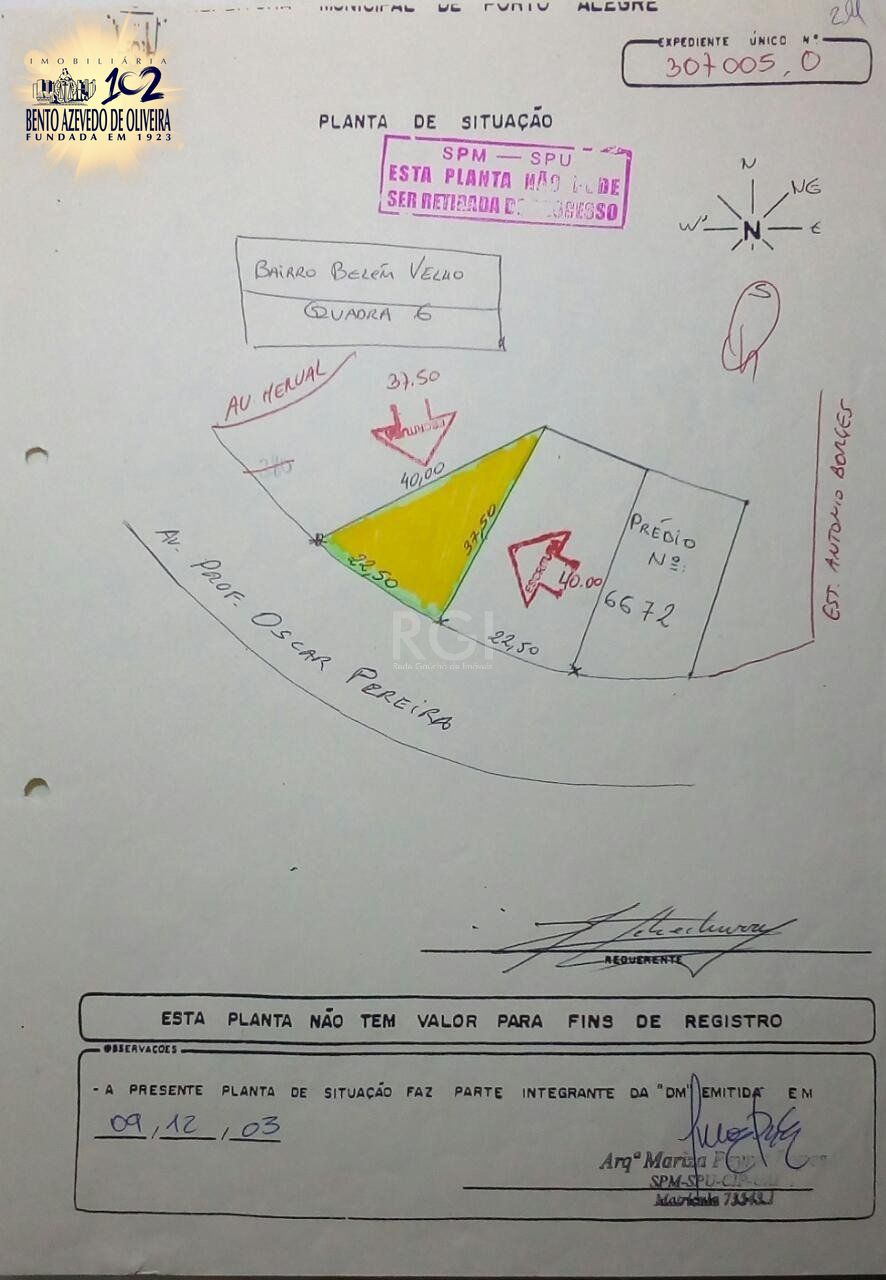 MUNICIPAL DE PORTO ALEGRE
IMOBILIÁRIA
102
BENTO AZEVEDO DE OLIVEIRA
FUNDADA EM 1923
EXPEDIENTE ÚNICO Nº
307005,0
PLANTA DE SITUAÇÃO
SPM — SPU
ESTA PLANTA NÃO
SER RETIRADA
N
NE
W
N
E
S
BAIRRO BELÉM VELHO
QUADRA 6
AV HERVAL
37.50
ESCRITURA
40,00
37,50
22,50
ESCRITURA
40.00
22,50
PRÉDIO
Nº:
6672
EST. ANTONIO BORGES
AV. PROF. OSCAR PEREIRA
RGI
Rede Gaúcha de Imóveis
REQUERENTE
ESTA PLANTA NÃO TEM VALOR PARA FINS DE REGISTRO
OBSERVAÇÕES
- A PRESENTE PLANTA DE SITUAÇÃO FAZ PARTE INTEGRANTE DA "DM" EMITIDA EM
09,12,03
Arqª Mariza
SPM-SPU-
Matrícula